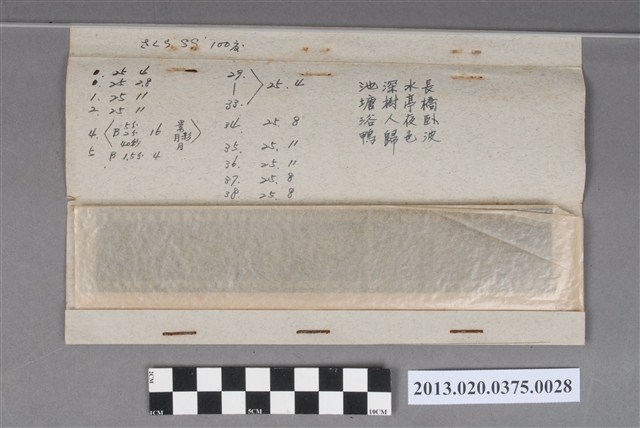 さくら SS 100度
0. 25 4
0. 25 2.8
1. 25 11
2. 25 11
4. B 5S. 25. 40秒 16
5 B 1.5S. 4
29. 33. 25. 4
34. 25. 8
35. 25. 11
36. 25. 11
37. 25. 8
38. 25. 8
長橋臥波
水亭夜色
深樹人歸
池塘浴鴨
2CM
1CM 5CM 10CM
2013.020.0375.0028